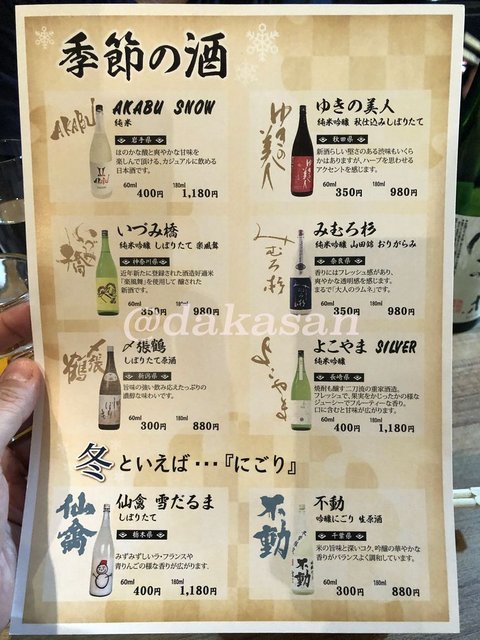 季節の酒
AKABU
AKABU SNOW
純米
岩手県
ほのかな酸と爽やかな甘味を
楽しんで頂ける、カジュアルに飲める
日本酒です。
60ml 180ml
400円 1,180円
ゆきの美人
ゆきの美人
純米吟醸 秋仕込みしぼりたて
秋田県
新酒らしい堅さのある渋味もいくら
かはありますが、ハーブを思わせる
アクセントを感じます。
60ml 180ml
350円 980円
いづみ橋
いづみ橋
純米吟醸 しぼりたて 楽風舞
神奈川県
近年新たに登録された酒造好適米
「楽風舞」を使用して 醸された
新酒です。
60ml 180ml
350円 980円
みむろ杉
みむろ杉
純米吟醸 山田錦 おりがらみ
奈良県
香りにはフレッシュ感があり、
爽やかな透明感を感じます。
まるで「大人のラムネ」です。
60ml 180ml
350円 980円
@dakasan
〆張鶴
〆張鶴
しぼりたて原酒
新潟県
旨味の強い飲み応えたっぷりの
濃醇な味わいです。
60ml 180ml
300円 880円
よこやま
よこやま SILVER
純米吟醸
長崎県
焼酎も醸す二刀流の重家酒造。
フレッシュで、果実をかじったかの様な
ジューシーでフルーティーな香り。
口に含むと甘味が広がります。
60ml 180ml
400円 1,180円
冬といえば…『にごり』
仙禽
仙禽 雪だるま
しぼりたて
栃木県
みずみずしいラ・フランスや
青りんごの様な香りが広がります。
60ml 180ml
400円 1,180円
不動
不動
吟醸にごり 生原酒
千葉県
米の旨味と深いコク、吟醸の華やかな
香りがバランスよく調和しています。
60ml 180ml
300円 880円